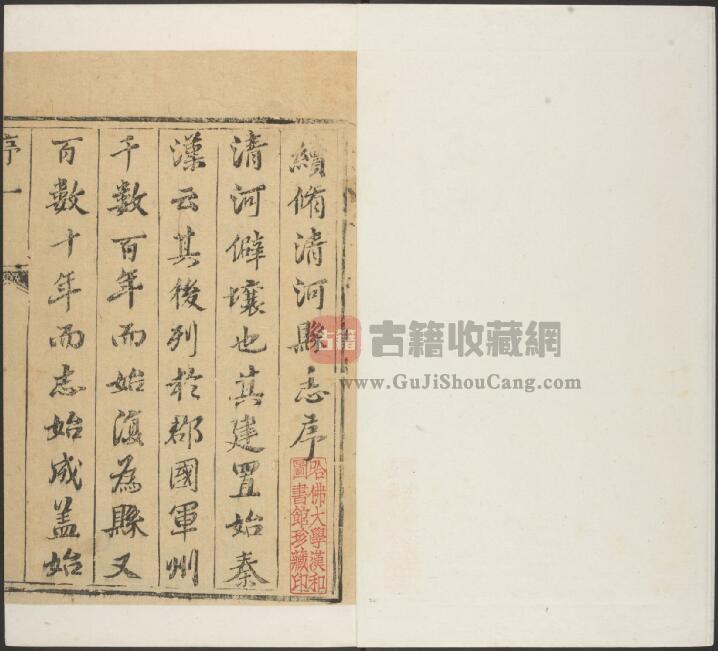 續脩清河縣志序
清河僻壤也其建置始秦
漢云其後列於郡國軍州
千數百年而始復為縣又
百數十年而志始成蓋始
序一
哈佛大學漢和
圖書館珍藏印
古籍 古籍收藏網
www.GuJiShouCang.com